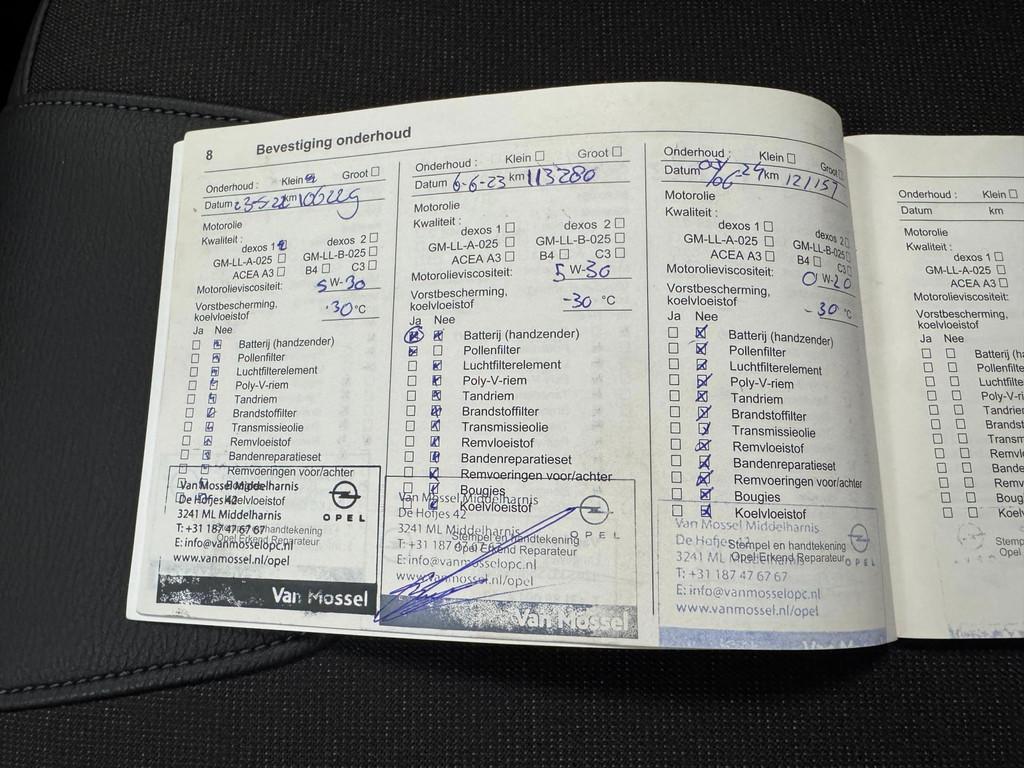 8 Bevestiging onderhoud
Onderhoud : Klein Groot
Datum 23-5-22 km 106229
Motorolie
Kwaliteit :
dexos 1 dexos 2
GM-LL-A-025 GM-LL-B-025
ACEA A3 B4 C3
Motorolieviscositeit: 5 W-30
Vorstbescherming,
koelvloeistof -30 °C
Ja Nee
Batterij (handzender)
Pollenfilter
Luchtfilterelement
Poly-V-riem
Tandriem
Brandstoffilter
Transmissieolie
Remvloeistof
Bandenreparatieset
Remvoeringen voor/achter
Bougies
Koelvloeistof
Stempel en handtekening
Opel Erkend Reparateur
Van Mossel Middelharnis
De Hofjes 42
3241 ML Middelharnis
T: +31 187 47 67 67
E: info@vanmosselopc.nl
www.vanmossel.nl/opel
OPEL
Van Mossel
Onderhoud : Klein Groot
Datum 6-6-23 km 113280
Motorolie
Kwaliteit :
dexos 1 dexos 2
GM-LL-A-025 GM-LL-B-025
ACEA A3 B4 C3
Motorolieviscositeit: 5 W-30
Vorstbescherming,
koelvloeistof -30 °C
Ja Nee
Batterij (handzender)
Pollenfilter
Luchtfilterelement
Poly-V-riem
Tandriem
Brandstoffilter
Transmissieolie
Remvloeistof
Bandenreparatieset
Remvoeringen voor/achter
Bougies
Koelvloeistof
Stempel en handtekening
Opel Erkend Reparateur
Van Mossel Middelharnis
De Hofjes 42
3241 ML Middelharnis
T: +31 187 47 67 67
E: info@vanmosselopc.nl
www.vanmossel.nl/opel
OPEL
Van Mossel
Onderhoud : Klein Groot
Datum 04/06-24 km 121157
Motorolie
Kwaliteit :
dexos 1 dexos 2
GM-LL-A-025 GM-LL-B-025
ACEA A3 B4 C3
Motorolieviscositeit: 0 W-20
Vorstbescherming,
koelvloeistof -30 °C
Ja Nee
Batterij (handzender)
Pollenfilter
Luchtfilterelement
Poly-V-riem
Tandriem
Brandstoffilter
Transmissieolie
Remvloeistof
Bandenreparatieset
Remvoeringen voor/achter
Bougies
Koelvloeistof
Stempel en handtekening
Opel Erkend Reparateur
Van Mossel Middelharnis
De Hofjes 42
3241 ML Middelharnis
T: +31 187 47 67 67
E: info@vanmosselopc.nl
www.vanmossel.nl/opel
OPEL
Van M
Onderhoud : Klein
Datum km
Motorolie
Kwaliteit :
dexos 1
GM-LL-A-025
ACEA A3
Motorolieviscositeit:
Vorstbescherming,
koelvloeistof
Ja Nee
Batterij (ha
Pollenfilte
Luchtfilte
Poly-V-ri
Tandrie
Brandst
Transm
Remvl
Bande
Remv
Boug
Koel
Stemp
Opel